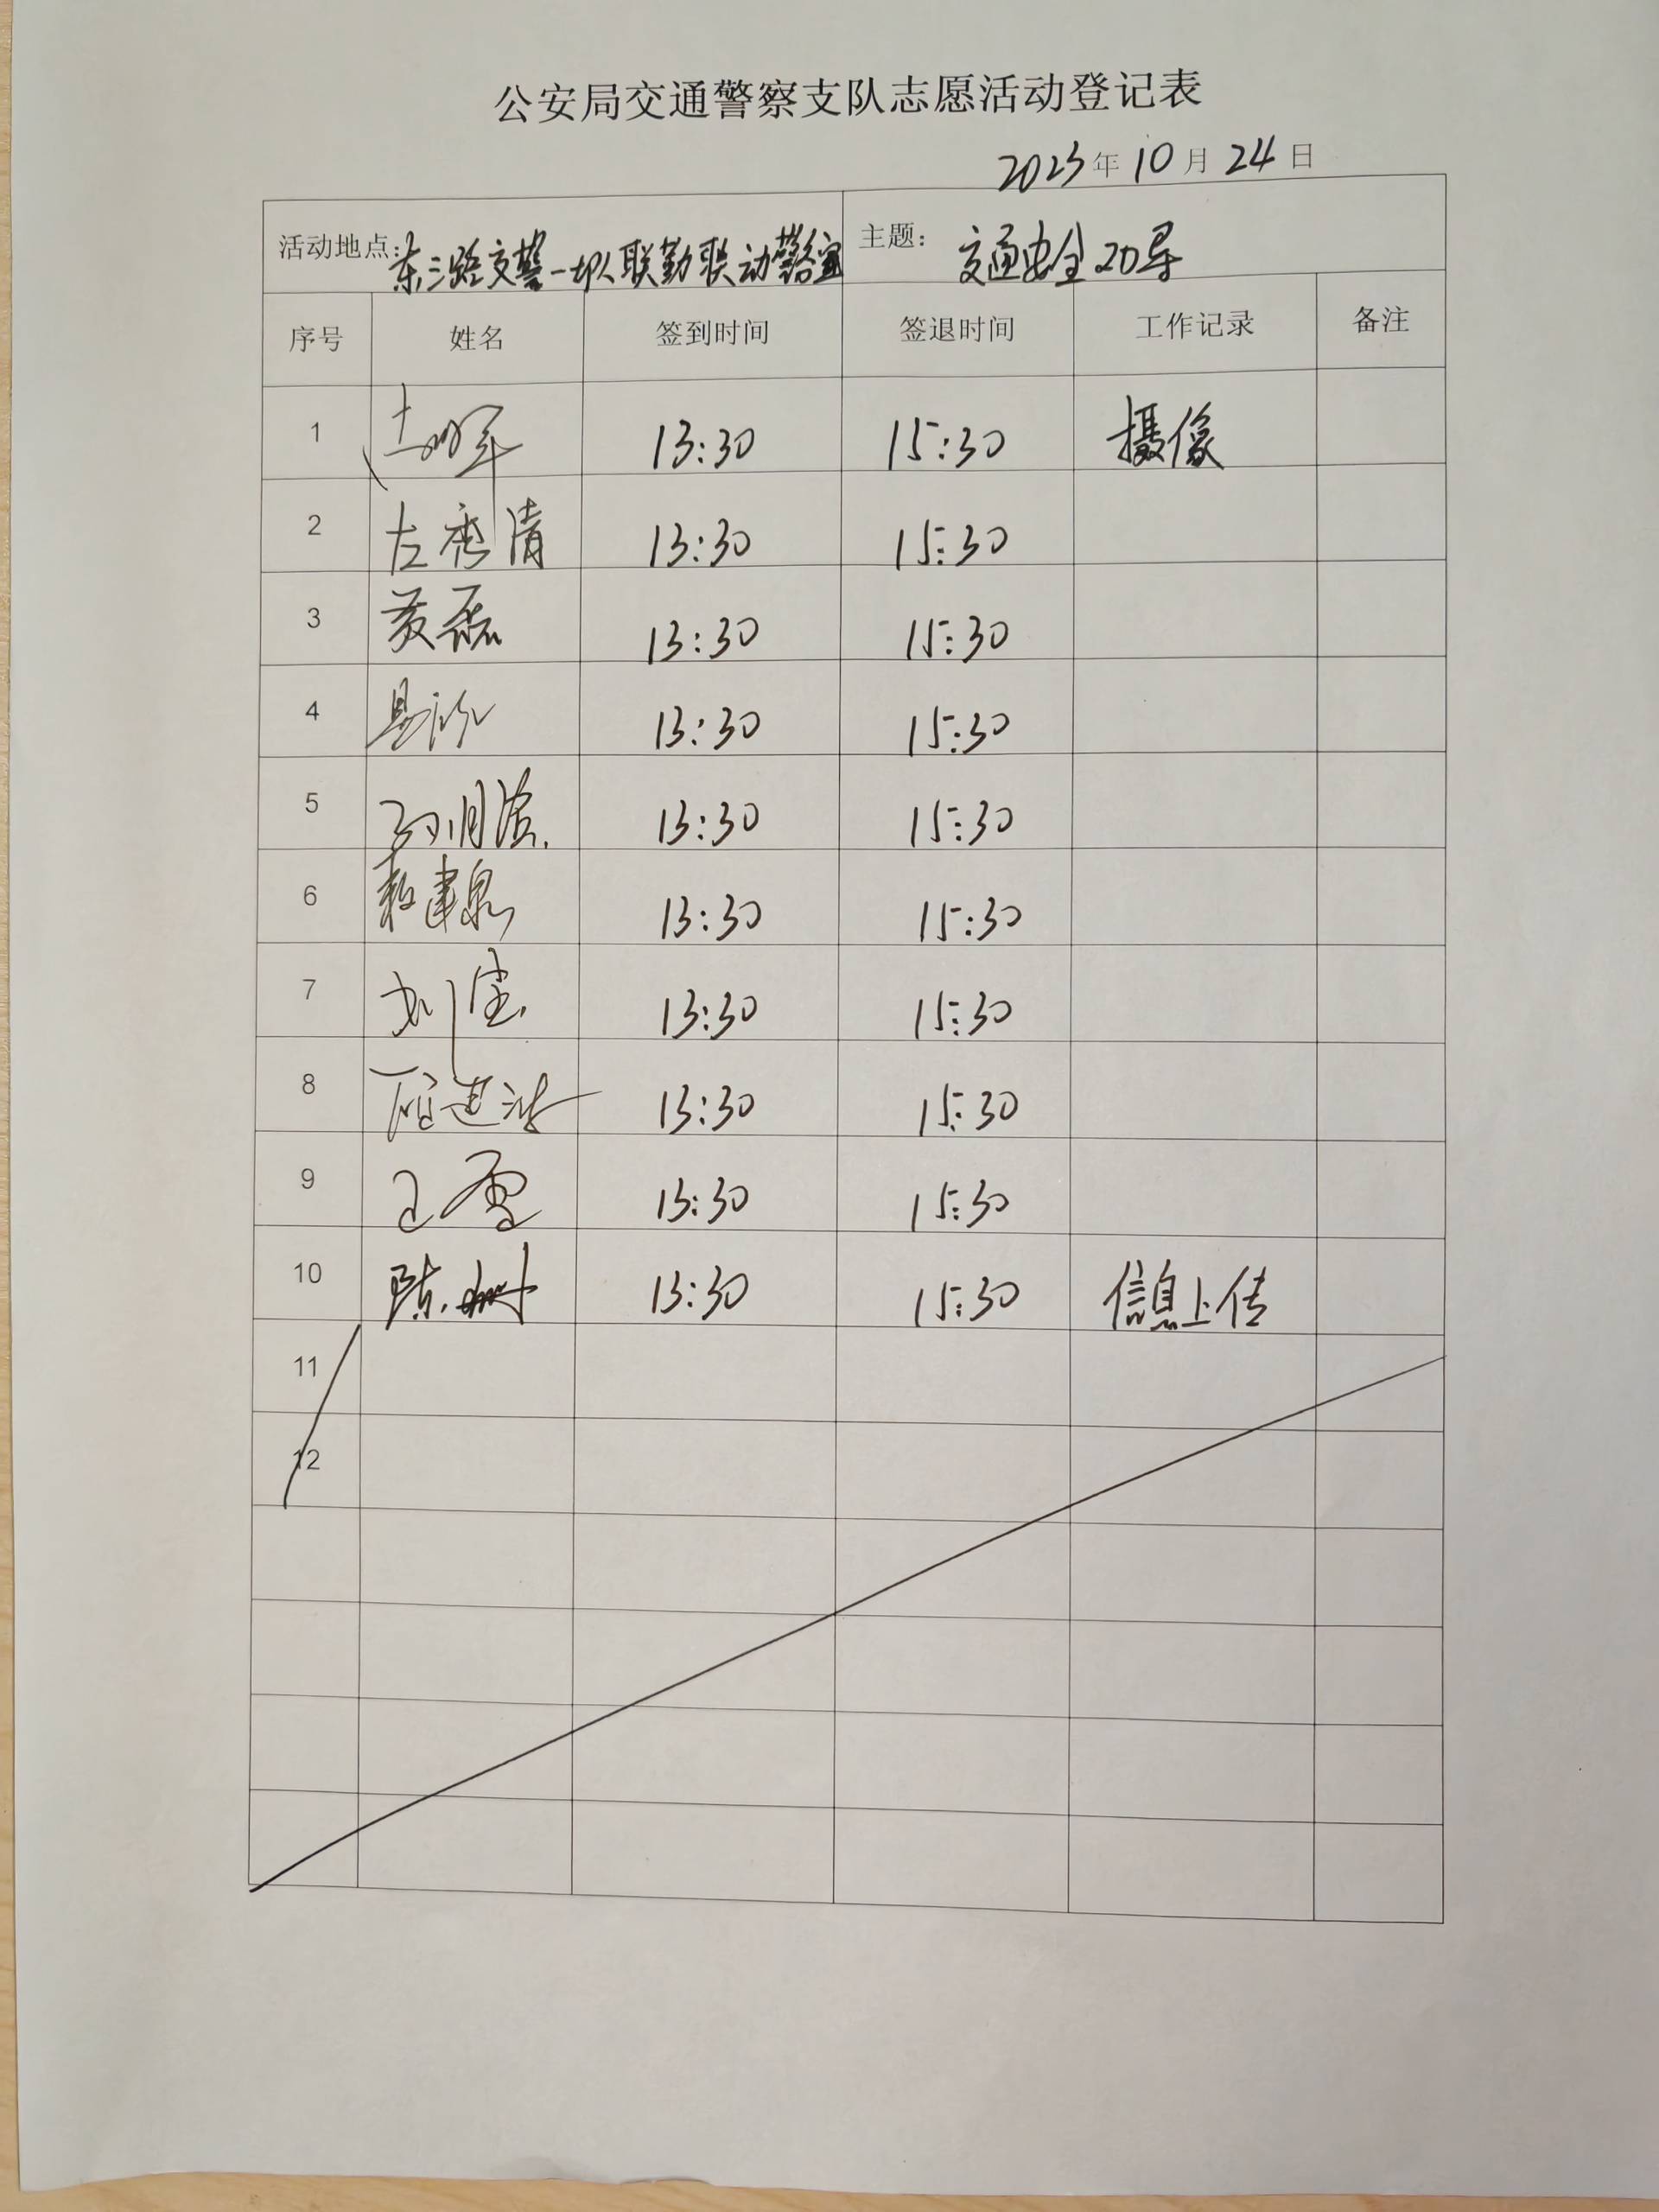 公安局交通警察支队志愿活动登记表
2023年10月24日
活动地点:东三路交警一队联勤联动警务室 主题: 交通安全劝导
序号 姓名 签到时间 签退时间 工作记录 备注
1 13:30 15:30 摄像
2 左秀清 13:30 15:30
3 黄磊 13:30 15:30
4 13:30 15:30
5 13:30 15:30
6 13:30 15:30
7 刘 13:30 15:30
8 13:30 15:30
9 王 13:30 15:30
10 陈 13:30 15:30 信息上传
11
12